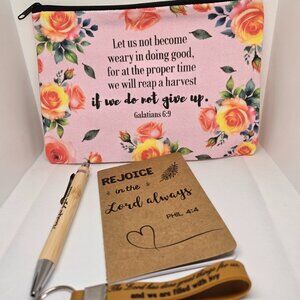 Let us not become
weary in doing good,
for at the proper time
we will reap a harvest
if we do not give up.
Galatians 6:9
REJOICE
in the
Lord always
PHIL 4:4
The Lord has done great things for us,
and we are filled with joy